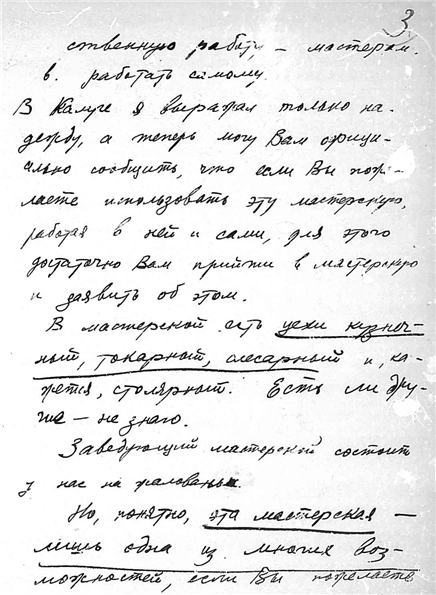 3
ственную работу, – мастерам.
в. работать самому.
В Калуге я выражал только на-
дежду, а теперь могу Вам офици-
ально сообщить, что если Вы поже-
лаете использовать эту мастерскую,
работая в ней и сами, для этого
достаточно Вам прийти в мастерскую
и заявить об этом.
В мастерской есть цехи кузнеч-
ный, токарный, слесарный и, ка-
жется, столярный. Есть ли дру-
гие – не знаю.
Заведующий мастерской состоит
у нас на жалованьи.
Но, понятно, эта мастерская –
лишь одна из многих воз-
можностей, если Вы пожелаете